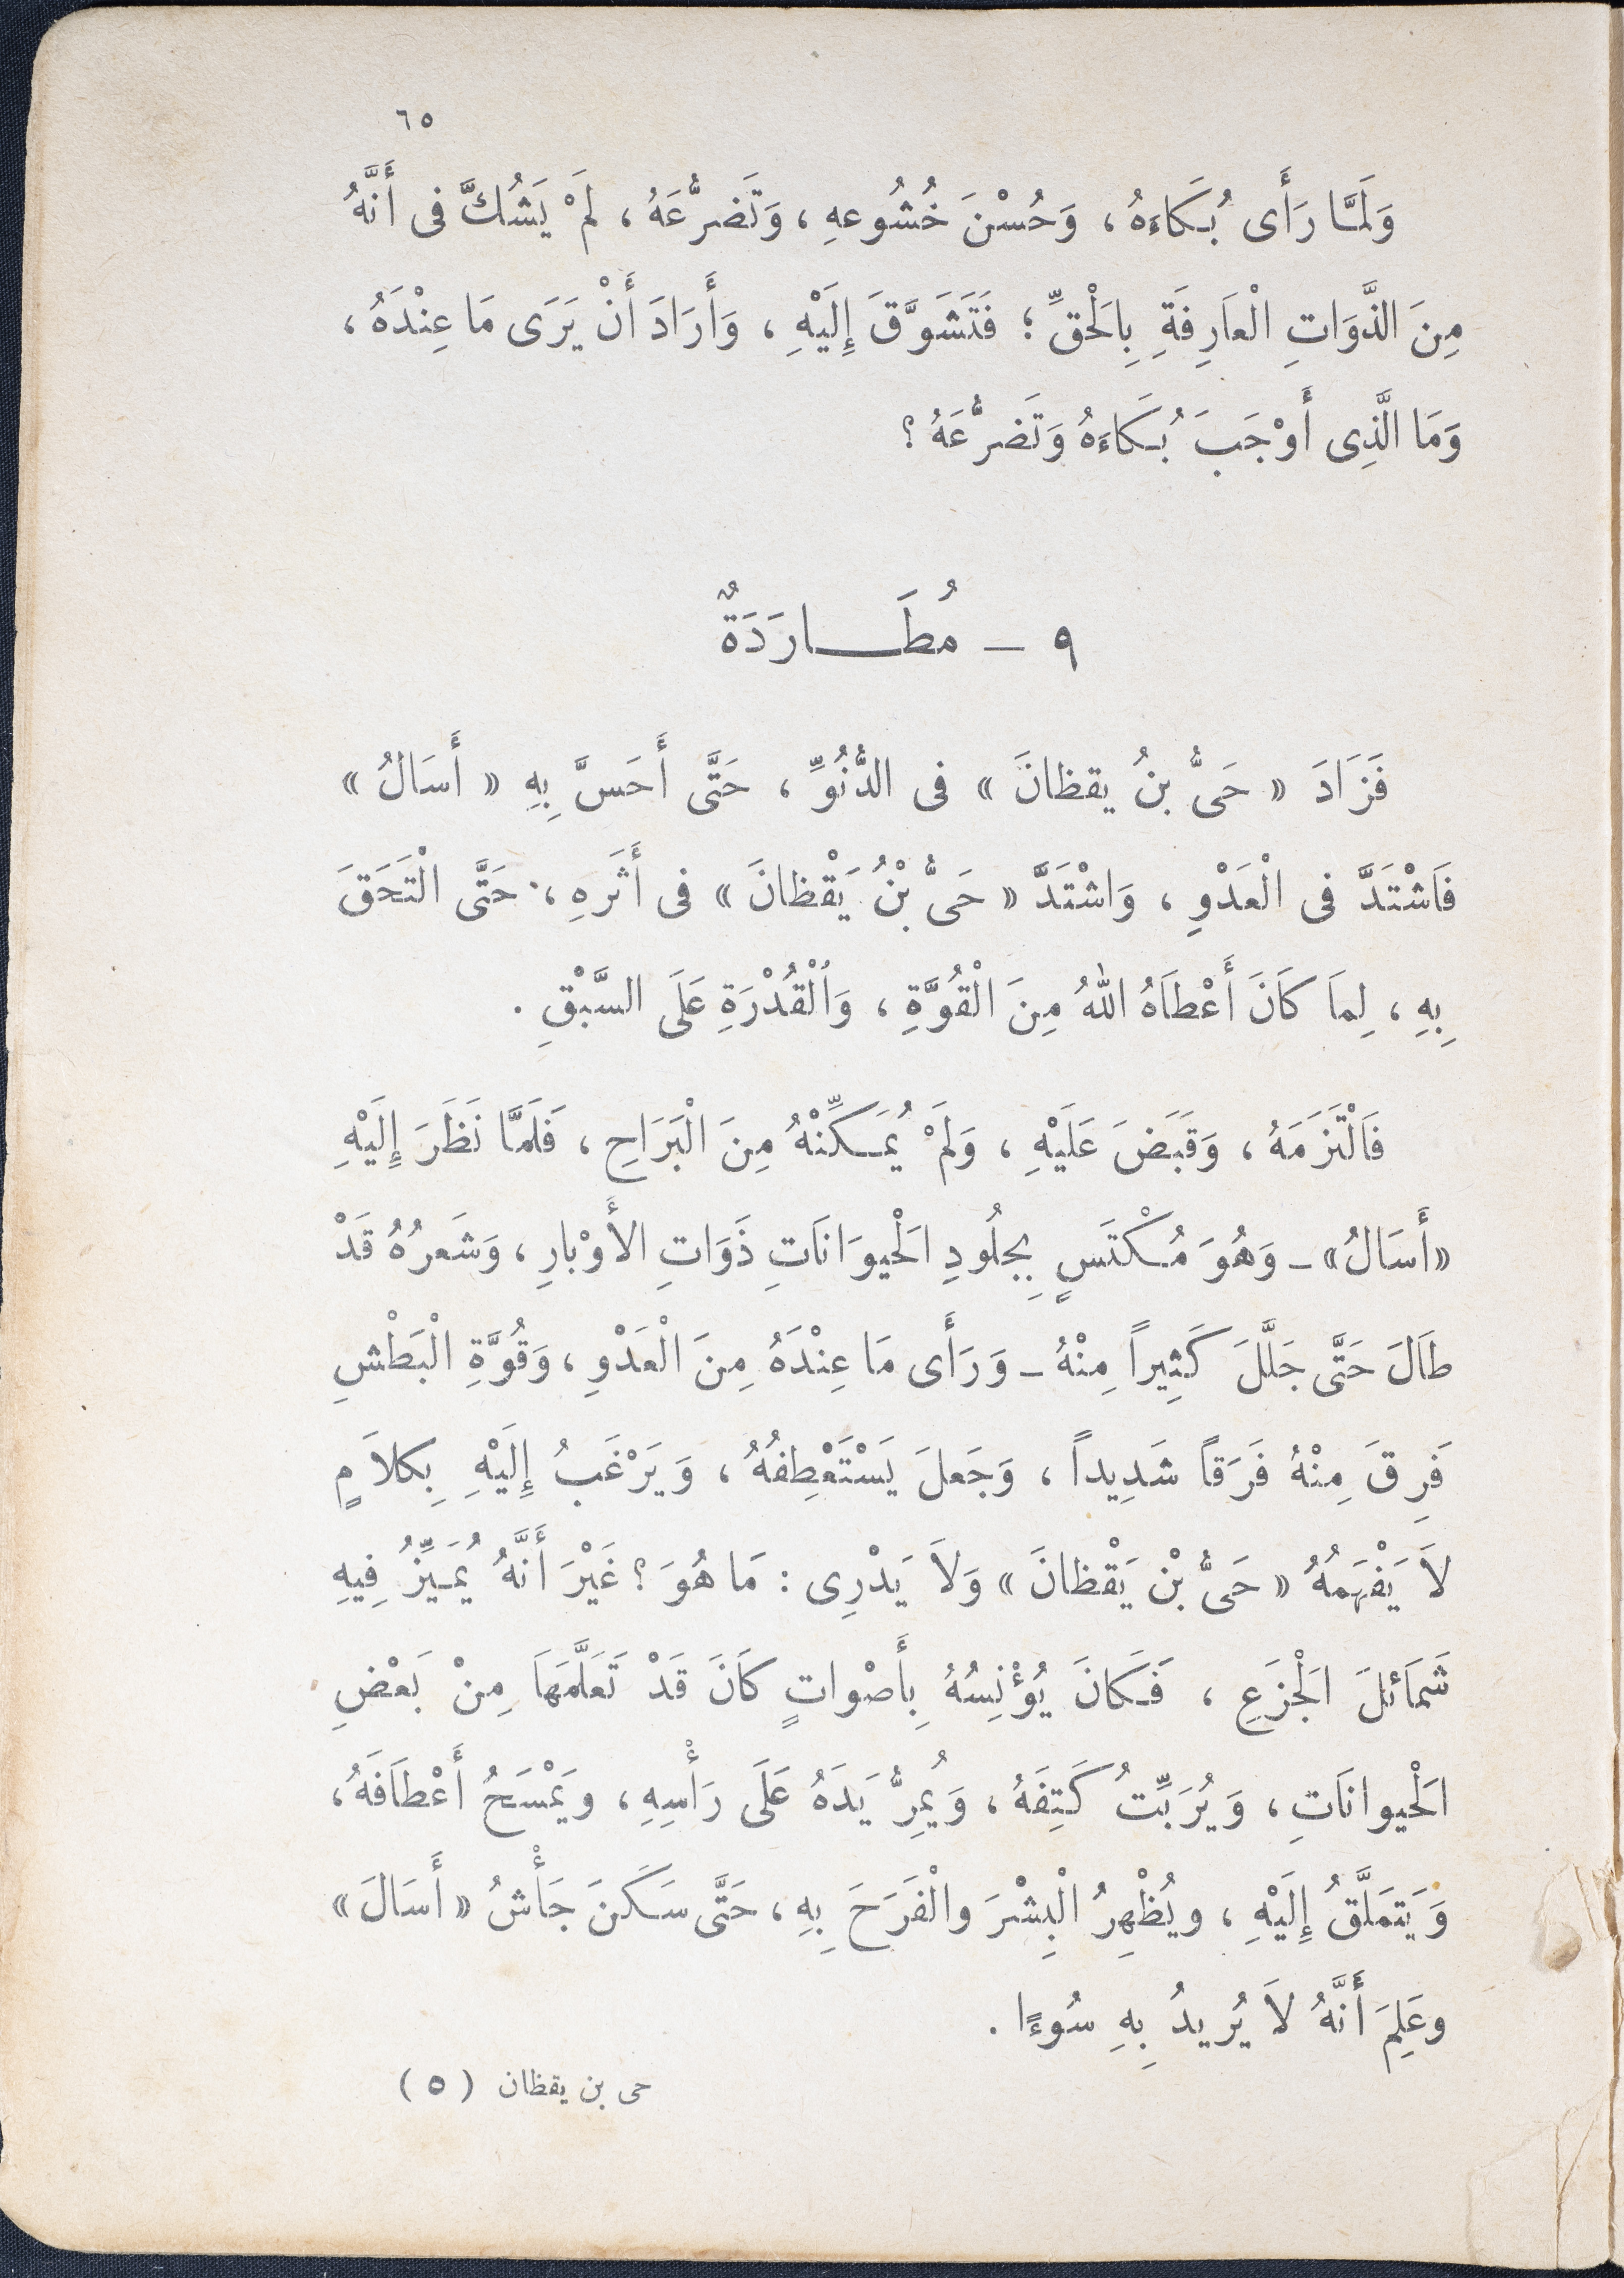 ٦٥
وَلَمَّا رَأَى بُكَاءَهُ ، وَحُسْنَ خُشُوعهِ ، وَتَضرُّعَهُ ، لَمْ يَشُكَّ فى أَنَّهُ
مِنَ الذَّوَاتِ الْعاَرِفَةِ بِالَحْقِّ ؛ فَتَشَوَّقَ إِلَيْهِ ، وَأَرَادَ أَنْ يَرَى مَا عِنْدَهُ ،
وَمَا الَّذِى أَوْجَبَ بُكَاءَهُ وَتَضرُّعَهُ ؟
٩ – مُطَـارَدَةٌ
فَزَادَ « حَىُّ بنُ يقظانَ » فى الدُّنُوِّ ، حَتَّى أَحَسَّ بِهِ « أَسَالُ »
فَاشْتَدَّ فى الْعَدْوِ ، وَاشْتَدَّ « حَىُّ بْنُ يَقْظانَ » فى أَثَرِهِ ، حَتَّى الْتَحَقَ
بِهِ ، لِمَا كاَنَ أَعْطاَهُ اللهُ مِنَ الْقُوَّةِ ، وَاُلْقُدْرَةِ عَلَى السَّبْقِ .
فَالْتَزَمَهُ ، وَقَبَضَ عَلَيْهِ ، وَلَمْ يُمَكِّنْهُ مِنَ الْبَرَاحِ ، فَلَمَّا نَظَرَ إِلَيْهِ
«أَسَالُ» – وَهُوَ مُكْتَسٍ بِجلُودِ الَحْيوَانَاتِ ذَوَاتِ الأَوْبارِ ، وَشَعرُهُ قَدْ
طَالَ حَتَّى جَلَّلَ كَثِيراً مِنْهُ – وَرَأَى مَا عِنْدَهُ مِنَ الْعَدْوِ ، وَقُوَّةِ الْبَطْشِ
فَرِقَ مِنْهُ فَرَقاً شَدِيداً ، وَجَعلَ يَسْتَعْطِفُهُ ، وَيَرْغَبُ إِلَيْهِ بِكلاَمٍ
لاَ يَفْهَمُهُ « حَىُّ بْن يَقْظانَ » وَلاَ يَدْرِى : مَا هُوَ ؟ غَيْرَ أَنَّهُ يُمَيِّزُ فِيهِ
شَمَائلَ الَجْزَعِ ، فَكَانَ يُؤْنِسُهُ بِأَصْواتٍ كاَنَ قَدْ تَعَلَّمَهاَ مِنْ بَعْضِ
الَحْيوانَاتِ ، وَيُرَبِّتُ كَتِفَهُ ، وَيُمِرُّ يَدَهُ عَلَى رَأْسِهِ ، ويَمْسَحُ أَعْطاَفَهُ ،
وَيَتمَلَّقُ إِلَيْهِ ، ويُظْهِرُ الْبِشْرَ والْفَرَحَ بِهِ ، حَتَّى سَكَنَ جَأْشُ « أَسَالَ »
وعَلِمَ أَنَّهُ لاَ يُريدُ بِهِ سُوءًا .
حى بن يقظان ( ٥ )